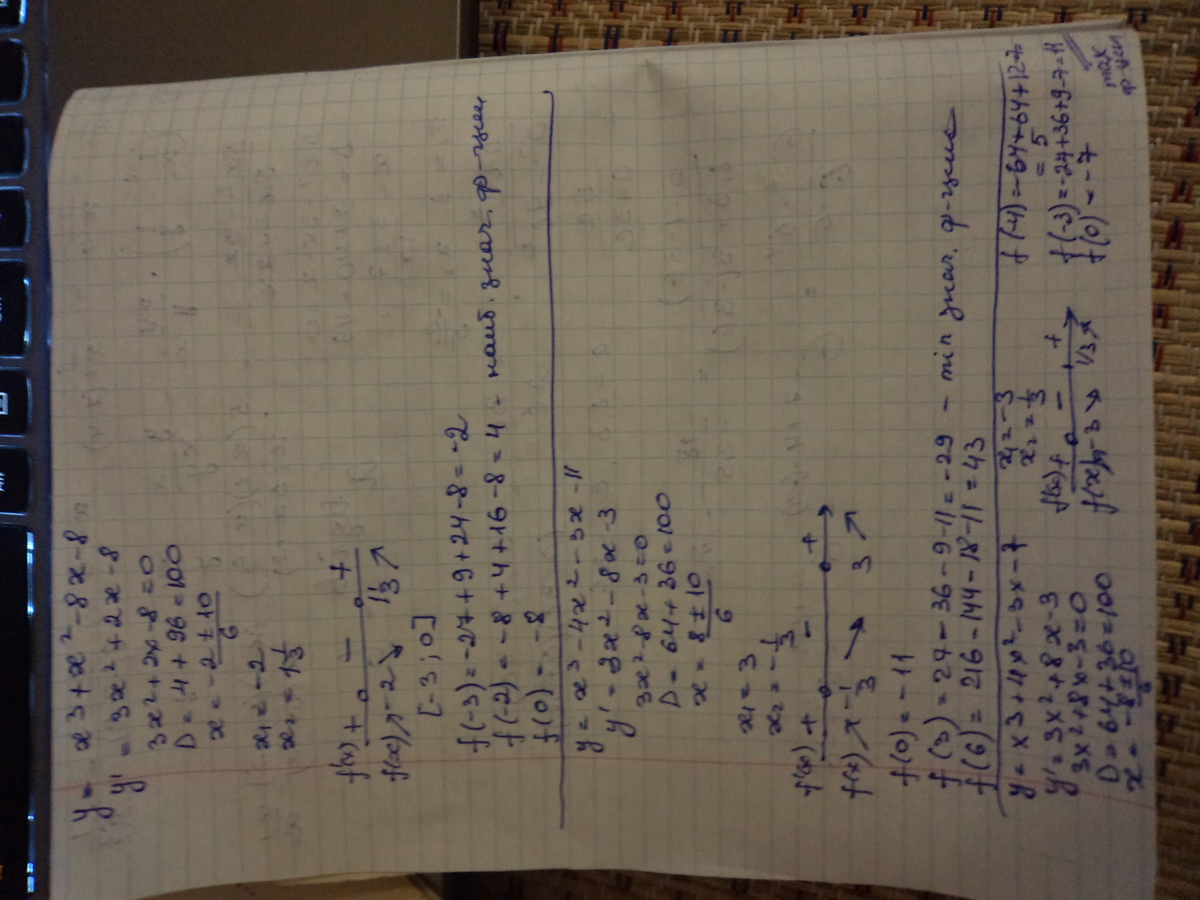 y = x3+x²-8x-8
y' = (3x²+2x-8
3x²+2x-8=0
D=4+96=100
x = -2±10
6
x₁=-2
x₂=1 1/3
f'(x) + - +
f(x) ↗ -2 ↘ 1 1/3 ↗
[-3;0]
f(-3)=-27+9+24-8=-2
f(-2)=-8+4+16-8=4 - наиб. знач. ф-ции
f(0)=-8
y = x³-4x²-3x-11
y' = 3x²-8x-3
3x²-8x-3=0
D=64+36=100
x = 8±10
6
x₁=3
x₂=-1/3
f'(x) + - +
f(x) ↗ -1/3 ↘ 3 ↗
f(0)=-11
f(3)=27-36-9-11=-29 - min знач. ф-ции
f(6)=216-144-18-11=43
y = x3+4x²-3x-7
y'=3x²+8x-3
3x²+8x-3=0
D=64+36=100
x = -8±10
6
x₁=-3
x₂=1/3
f'(x) + - +
f(x) ↗ -3 ↘ 1/3 ↗
f(-4)=-64+64+12-7
= 5
f(-3)=-27+36+9-7=11
f(0)=-7
max
ф-ции